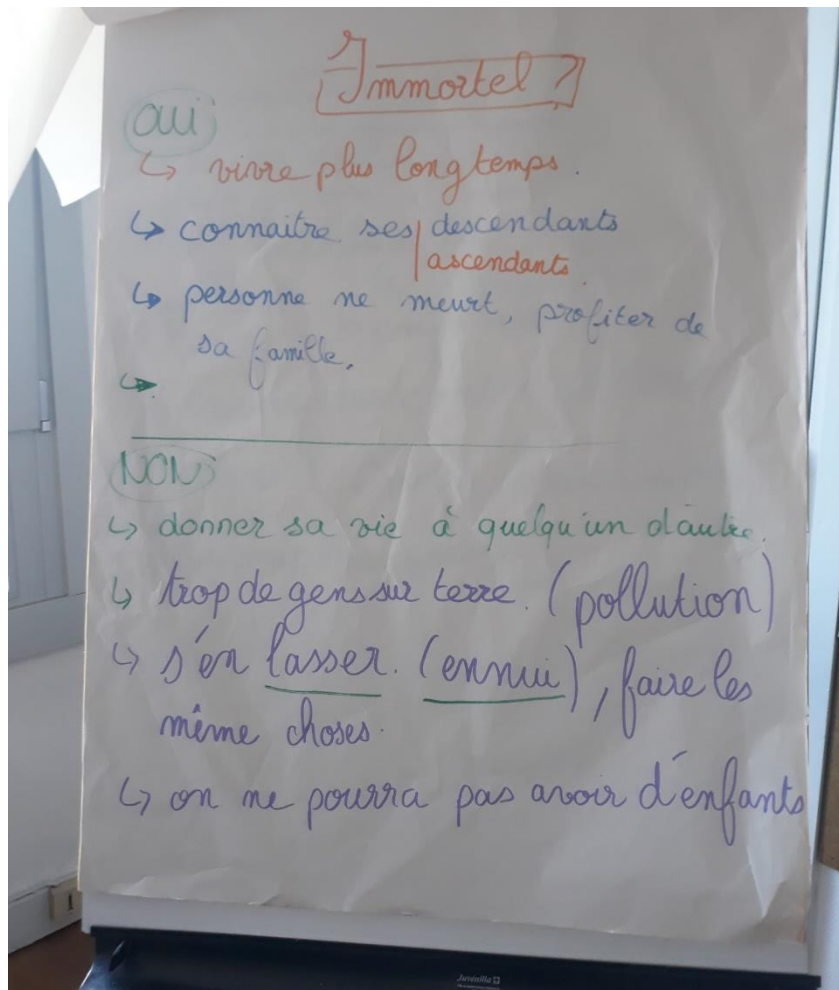 Immortel ?
OUI
↳ vivre plus longtemps.
↳ connaitre ses descendants
ascendants.
↳ personne ne meurt, profiter de
sa famille.
↳
NON
↳ donner sa vie à quelqu'un d'autre.
↳ trop de gens sur terre. (pollution)
↳ s'en lasser. (ennui), faire les
même choses.
↳ on ne pourra pas avoir d'enfants
Juvenilia